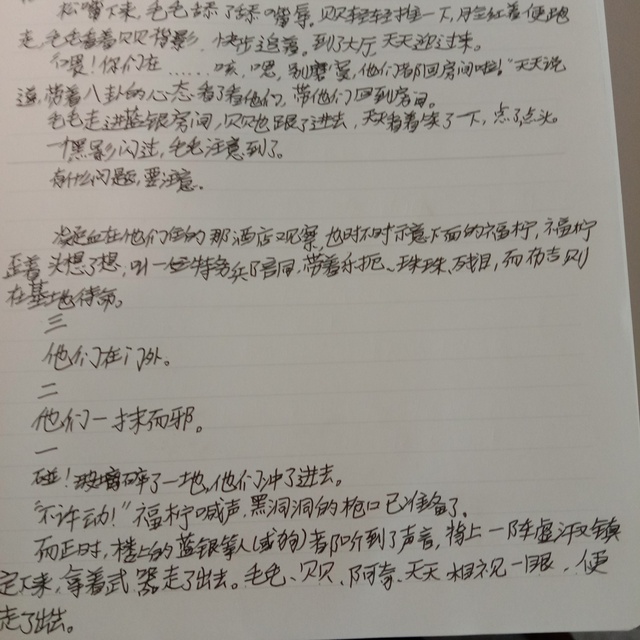 松嘴下来，毛毛舔了舔嘴唇。贝贝轻轻推一下，月兰红着便跑
走，毛毛看着贝贝背影，快步追着。到了大厅，天天迎过来。
“喂！你们在……咳，嗯，别磨蹭，他们都回房间啦。”天天说
道，带着八卦的心态看了看他们，带他们回到房间。
毛毛走进蓝银房间，贝贝也跟了进去，天天看着笑了一下，点了点头。
一黑影闪过，毛毛注意到了。
有什么问题，要注意。
在他们住的那酒店观察，也时不时示意下面的福柠，福柠
歪着头想了想，叫一些特务兵陪同，带着乐扼、珠珠、残目，而布吉则
在基地待命。
三
他们在门外。
二
他们一抹而邪。
一
碰！玻璃碎了一地，他们冲了进去。
“不许动！”福柠喊声，黑洞洞的枪口已准备了。
而正时，楼上的蓝银等人(或狗)者听到了声音，将上一阵虚汗又镇
定下来，拿着武器走了出去。毛毛、贝贝、阿奇、天天相视一眼，便
走了出去。